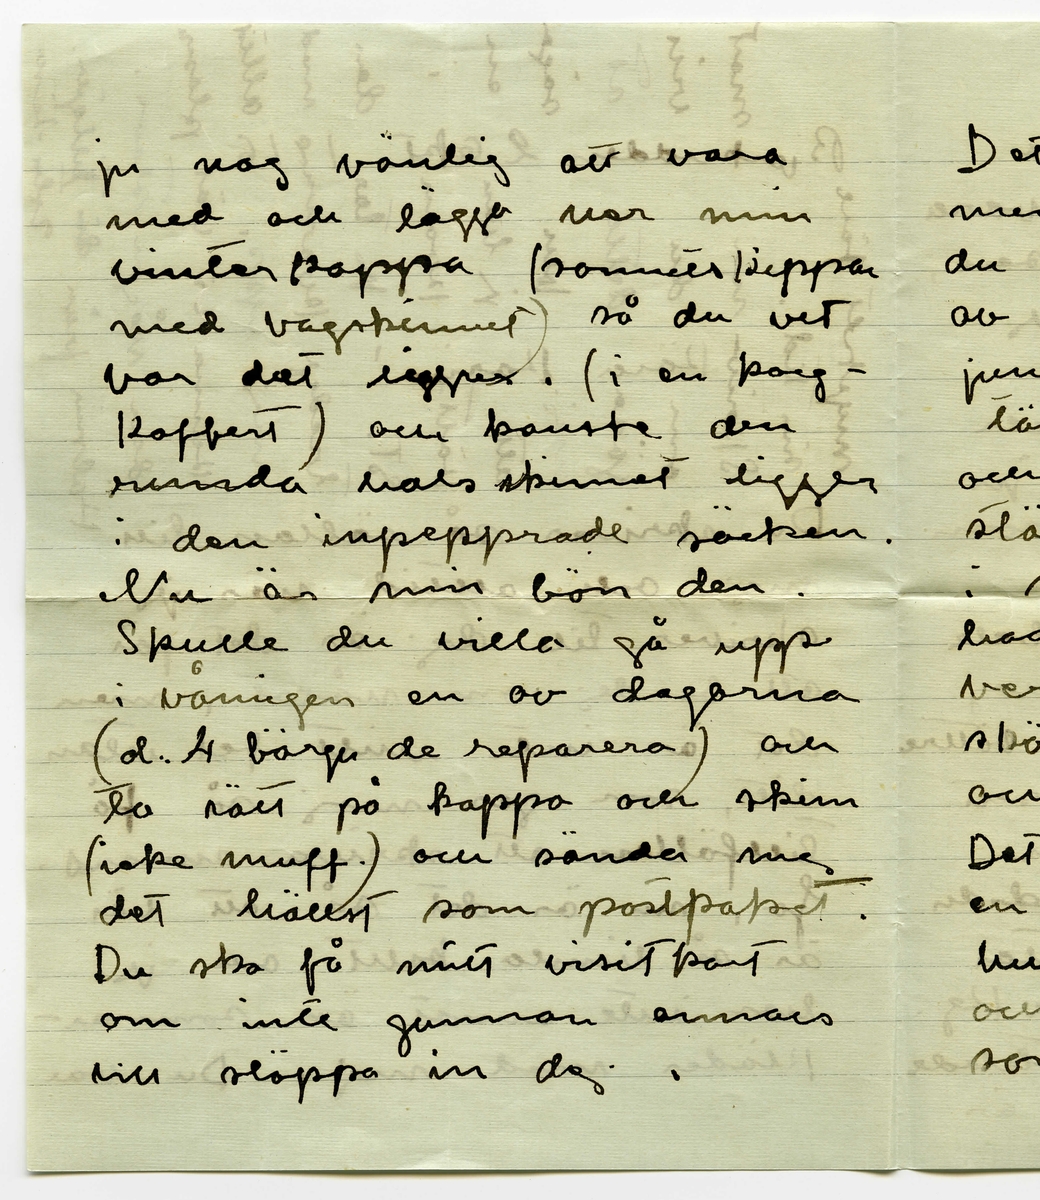 ju nog vänlig att vara
med och lägga ner min
vinterkappa (sammetskappan
med vargskinnet) så du vet
var det ligger. (i en korg-
koffert) och kanske den
runda halsskinnet ligger
i den inpepprade säcken.
Nu är min bön den.
Skulle du villa gå upp
i våningen en av dagarna
(d. 4 börja de reparera) och
ta rätt på kappa och skinn
(icke muff.) och sända mej
det hällst som postpaket.
Du ska få mitt visitkort
om inte gumman annars
vill släppa in dej.
Det
du
av
och
i
Det
en
och